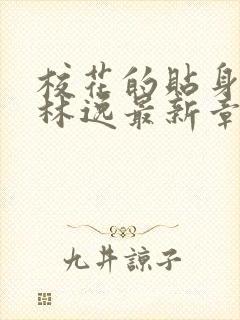 校花的贴身
林逸最新章
九井諒子